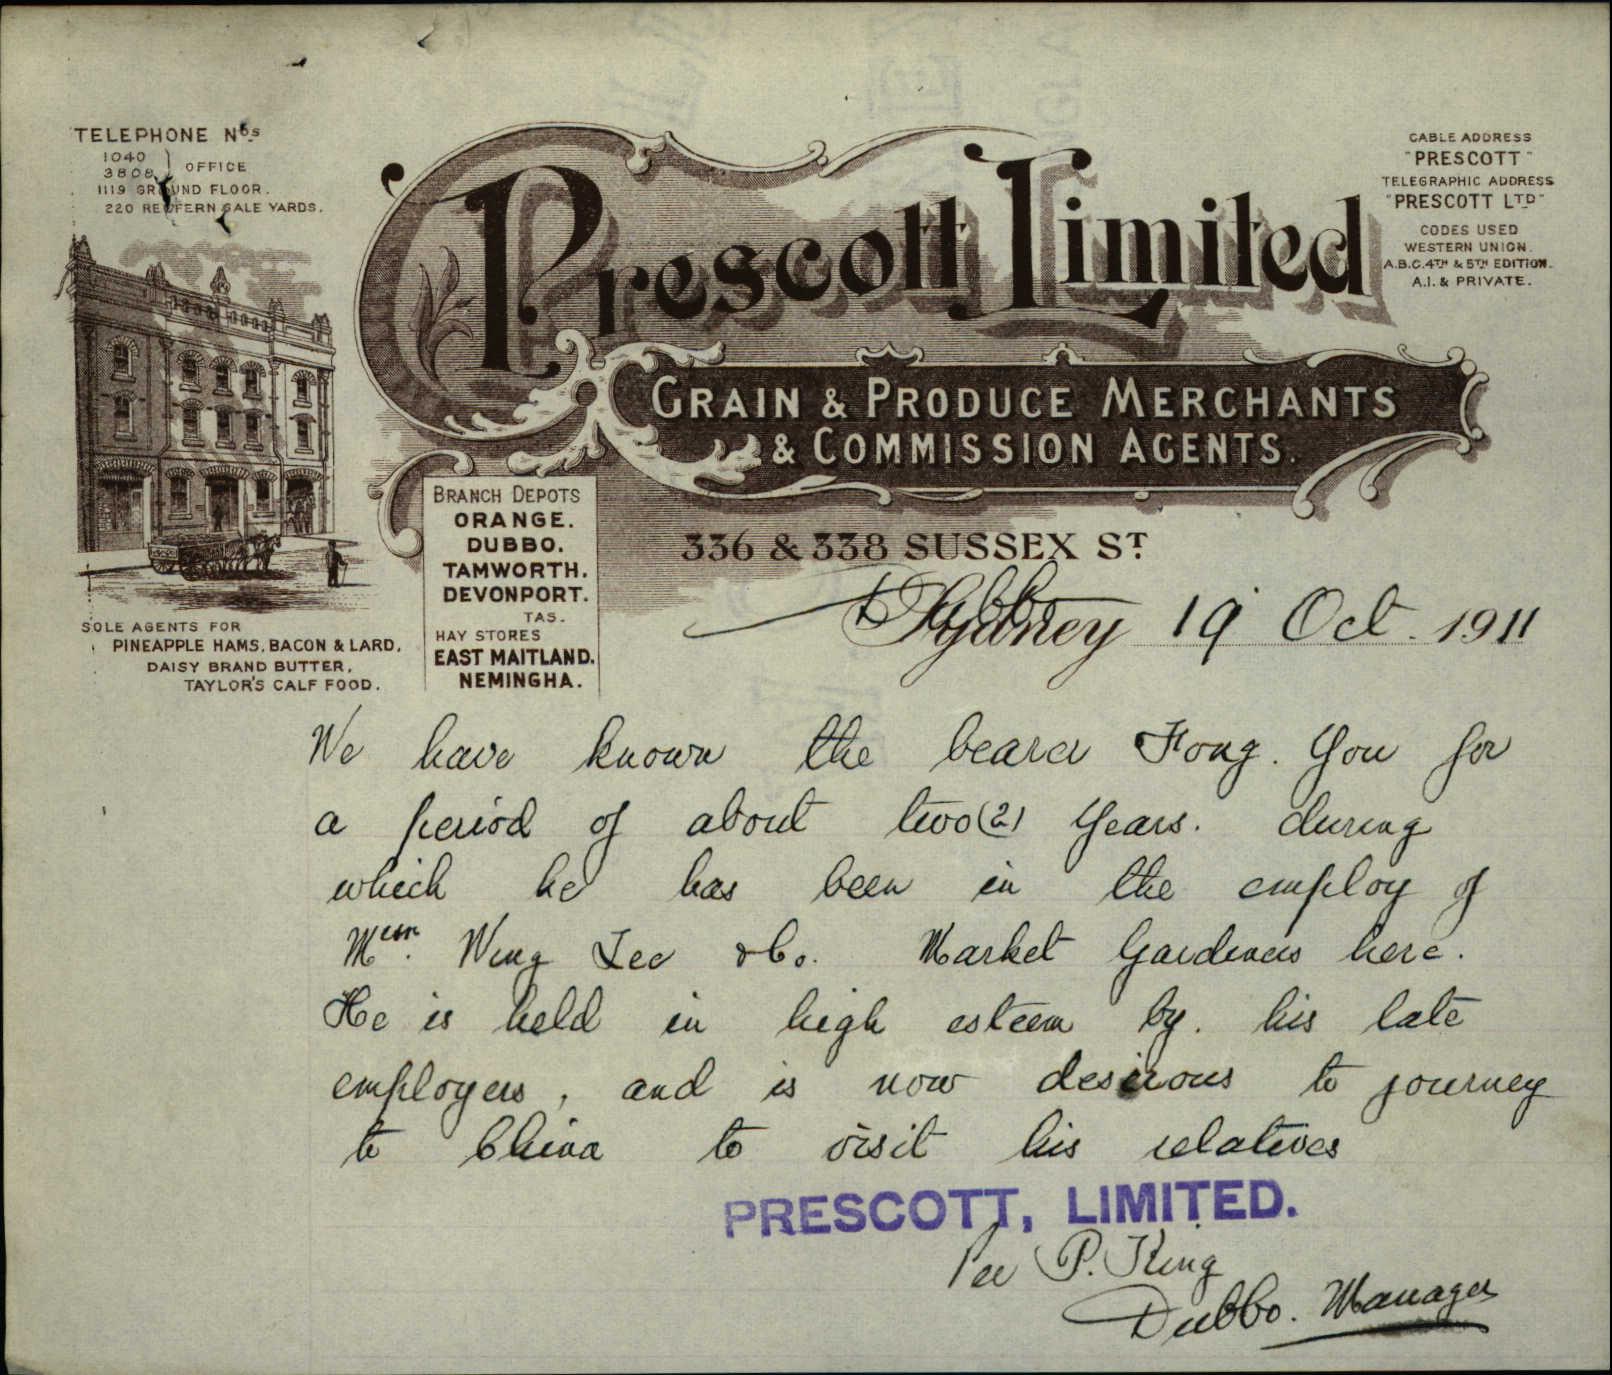 TELEPHONE Nos
1040
3808 } OFFICE
1119 GROUND FLOOR.
220 REDFERN SALE YARDS.
CABLE ADDRESS
"PRESCOTT"
TELEGRAPHIC ADDRESS
"PRESCOTT LTD"
CODES USED
WESTERN UNION.
A.B.C. 4TH & 5TH EDITION.
A.I. & PRIVATE.
Prescott Limited
GRAIN & PRODUCE MERCHANTS
& COMMISSION AGENTS.
BRANCH DEPOTS
ORANGE.
DUBBO.
TAMWORTH.
DEVONPORT.
TAS.
HAY STORES
EAST MAITLAND.
NEMINGHA.
SOLE AGENTS FOR
PINEAPPLE HAMS, BACON & LARD,
DAISY BRAND BUTTER,
TAYLOR'S CALF FOOD.
336 & 338 SUSSEX ST.
Dubbo
Sydney 19 Oct. 1911
We have known the bearer Fong. You for
a period of about two (2) Years. during
which he has been in the employ of
Messr. Wing Lee & Co. Market Gardeners here.
He is held in high esteem by. his late
employers, and is now desirous to journey
to China to visit his relatives
PRESCOTT, LIMITED.
Per P. King
Dubbo. Manager